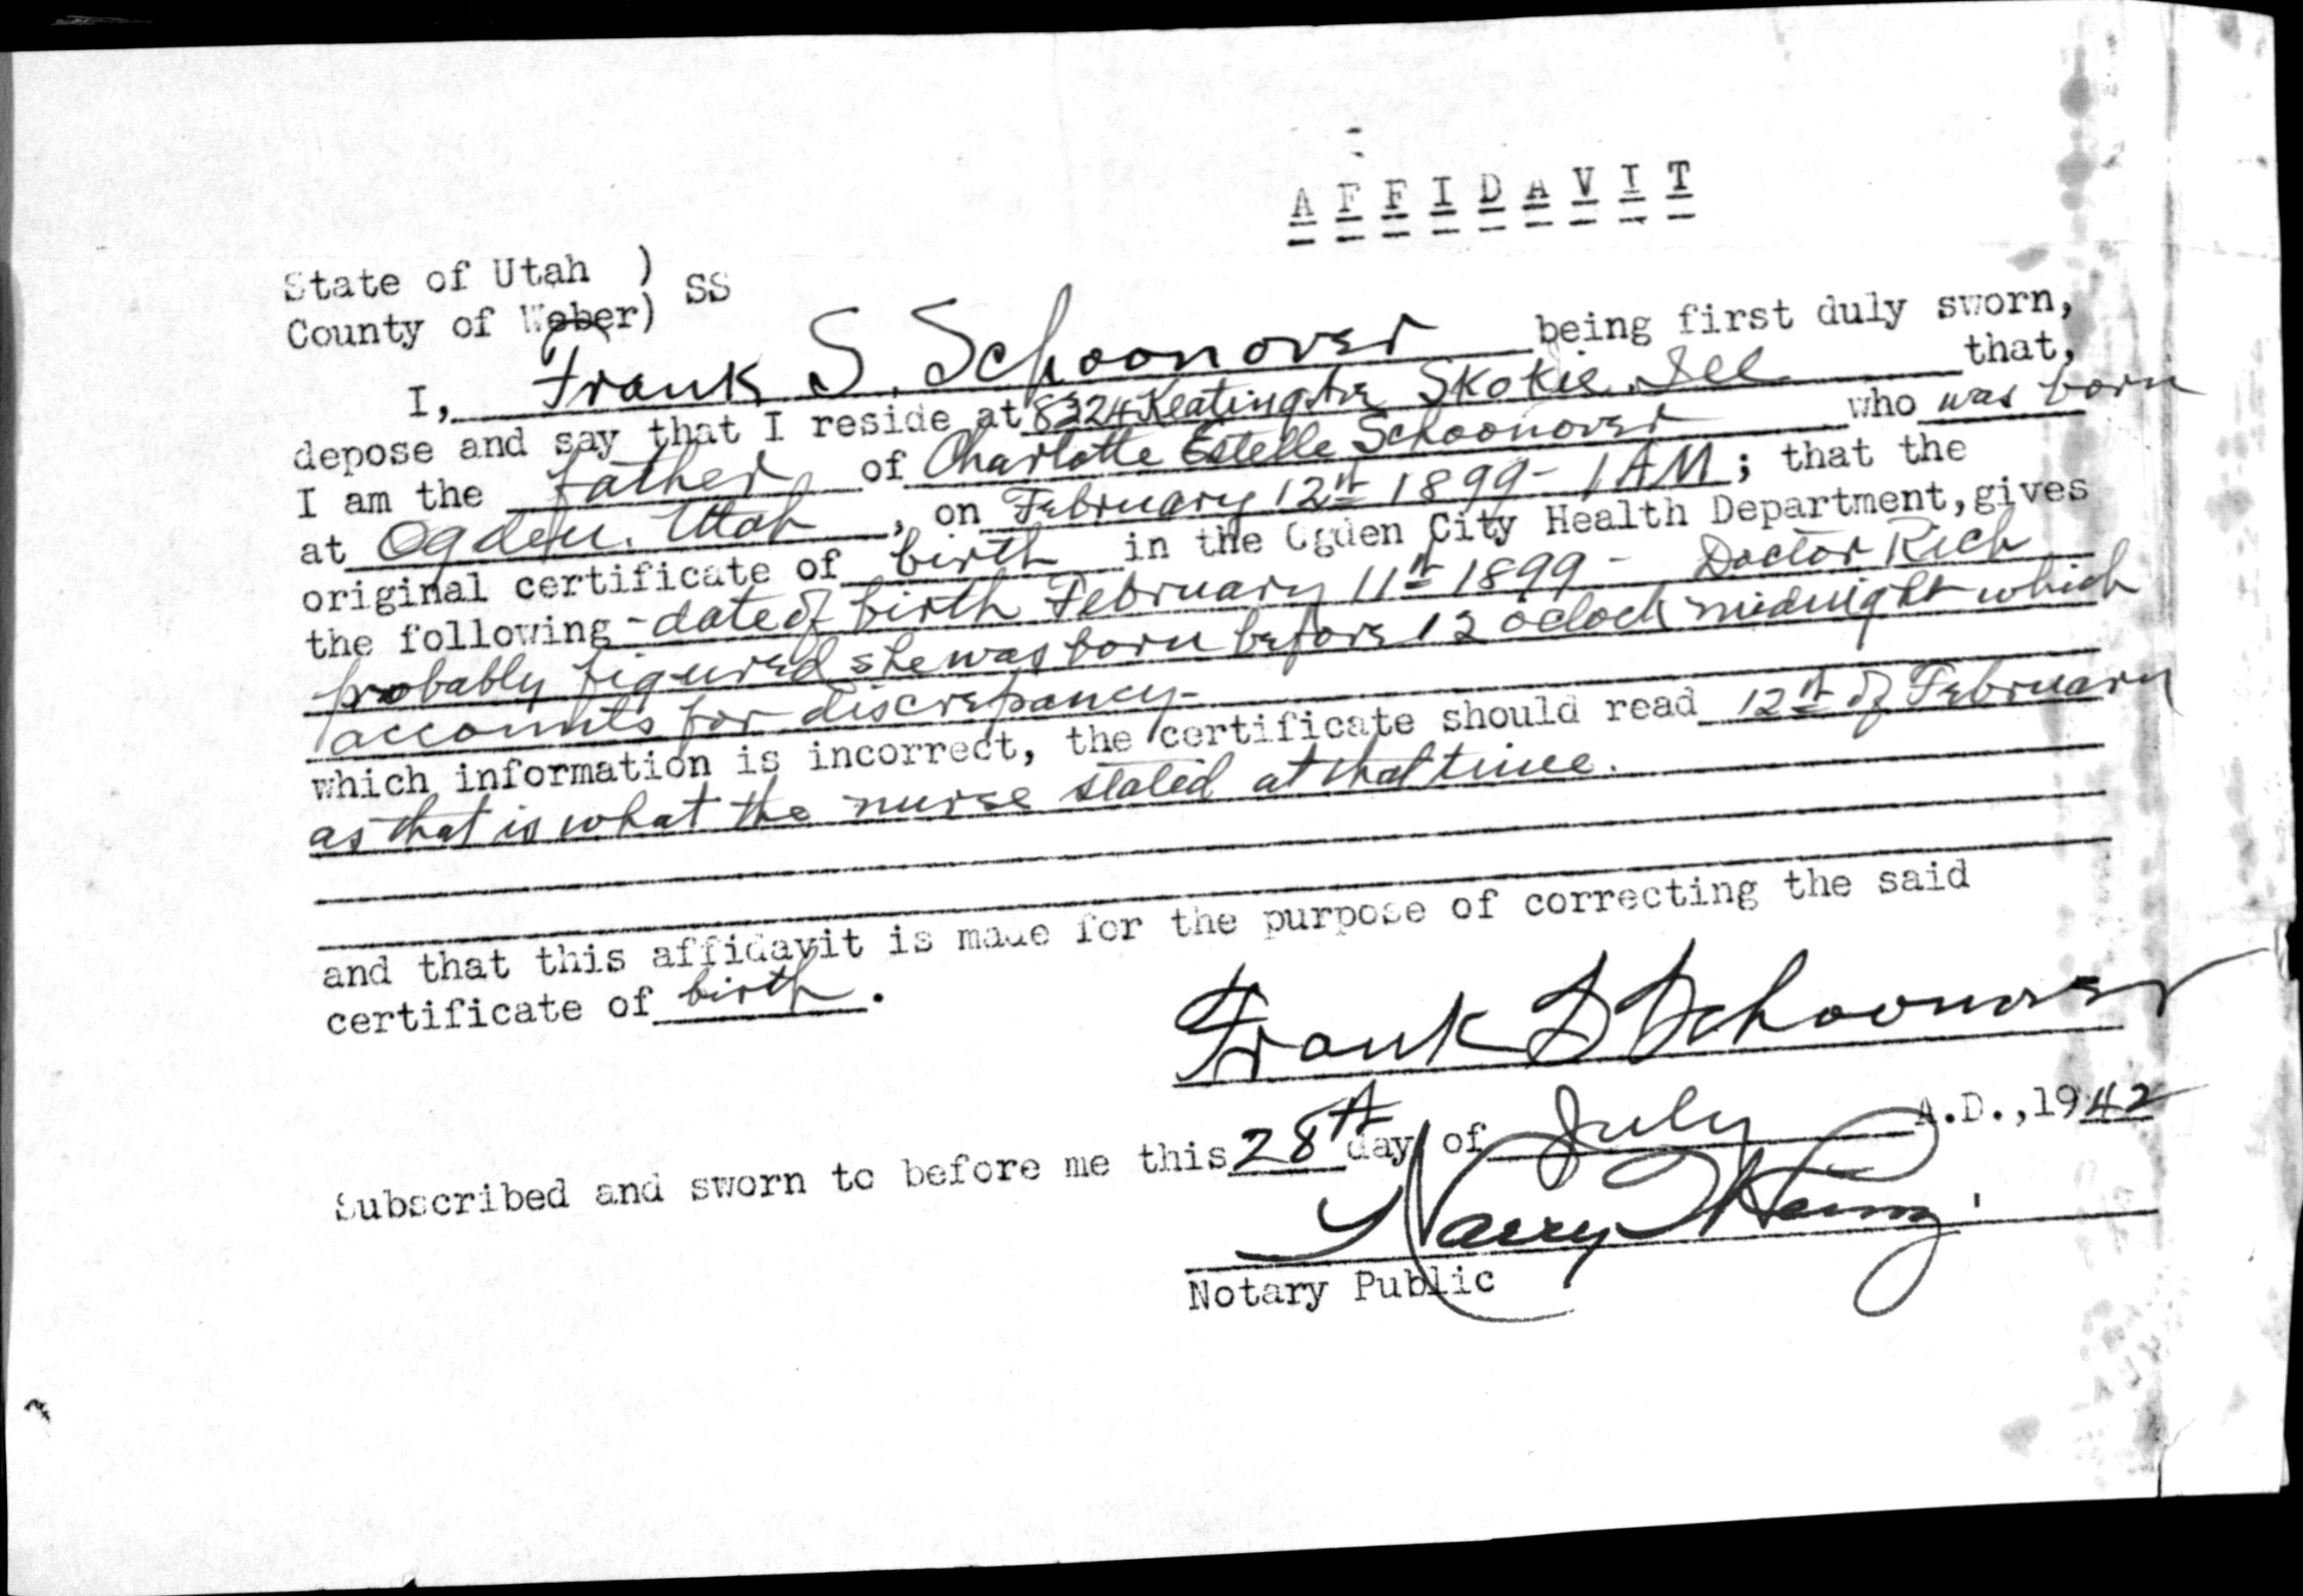 AFFIDAVIT
State of Utah )
County of Weber) SS
I, Frank S. Schoonover being first duly sworn,
depose and say that I reside at 8324 Keating Ave Skokie, Ill that,
I am the father of Charlotte Estelle Schoonover who was born
at Ogden, Utah, on February 12th 1899 - 1 AM; that the
original certificate of birth in the Ogden City Health Department, gives
the following - date of birth February 11th 1899 - Doctor Rich
probably figured she was born before 12 oclock midnight which
accounts for discrepancy -
which information is incorrect, the certificate should read 12th of February
as that is what the nurse stated at that time.
and that this affidavit is made for the purpose of correcting the said
certificate of birth.
Frank S Schoonover
Subscribed and sworn to before me this 28th day of July A.D., 1942
Harry
Notary Public